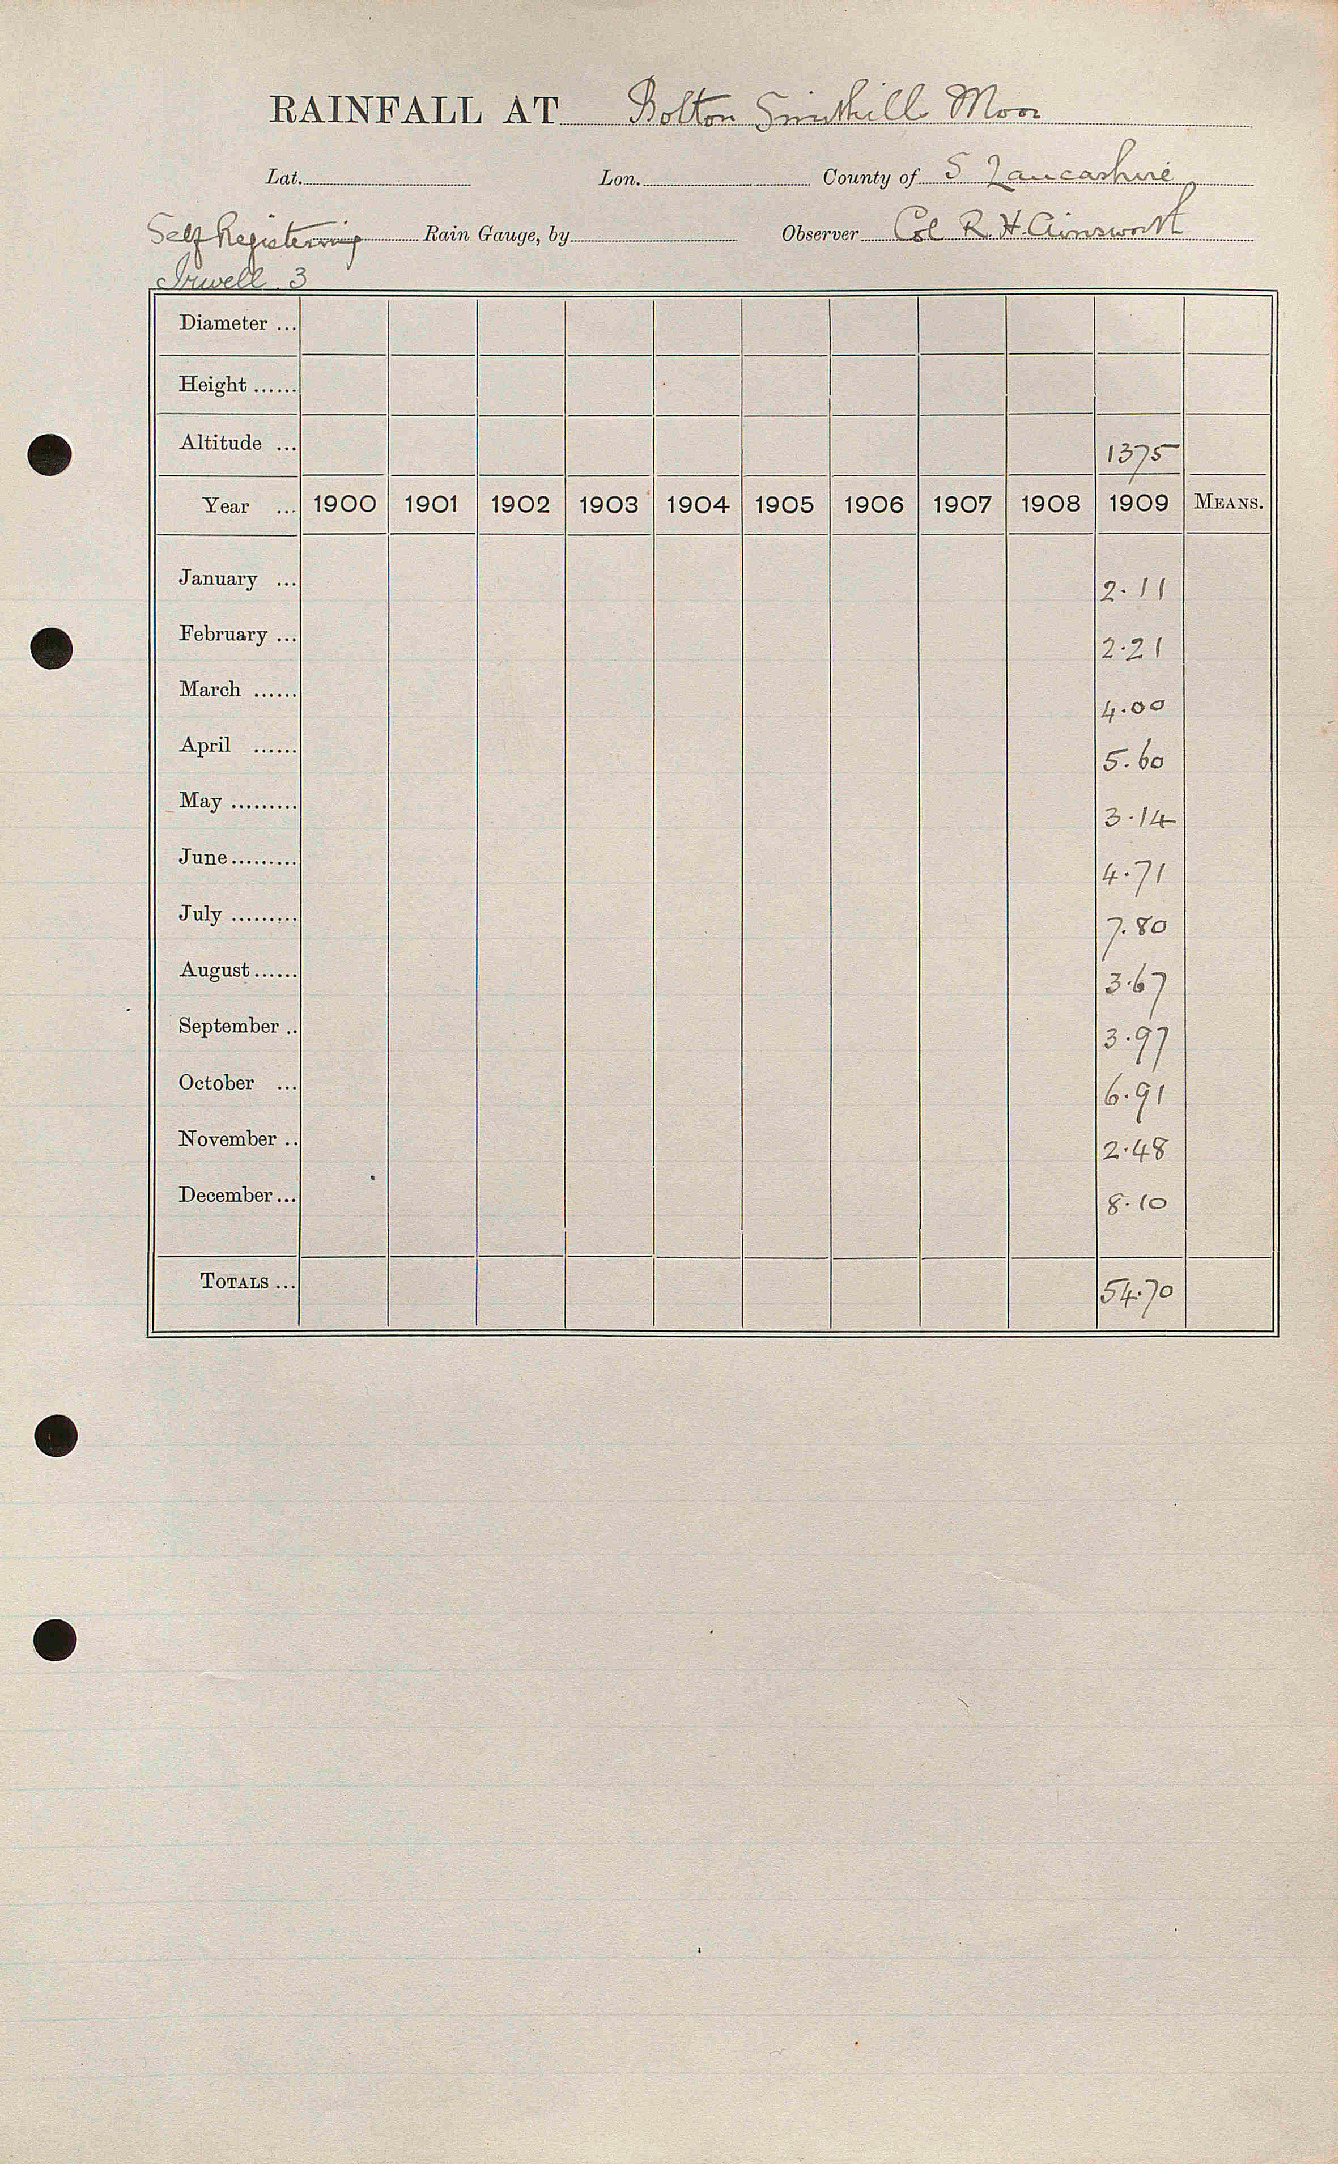 RAINFALL AT Bolton Smithill Moor
Lat. Lon. County of S Lancashire
Self Registering Rain Gauge, by Observer Col R. H. Ainsworth
Irwell 3
Diameter ...
Height ......
Altitude ... 1375
Year ... 1900 1901 1902 1903 1904 1905 1906 1907 1908 1909 MEANS.
January ... 2.11
February ... 2.21
March ...... 4.00
April ...... 5.60
May ......... 3.14
June ......... 4.71
July ......... 7.80
August ...... 3.67
September .. 3.97
October ... 6.91
November .. 2.48
December ... 8.10
TOTALS ... 54.70